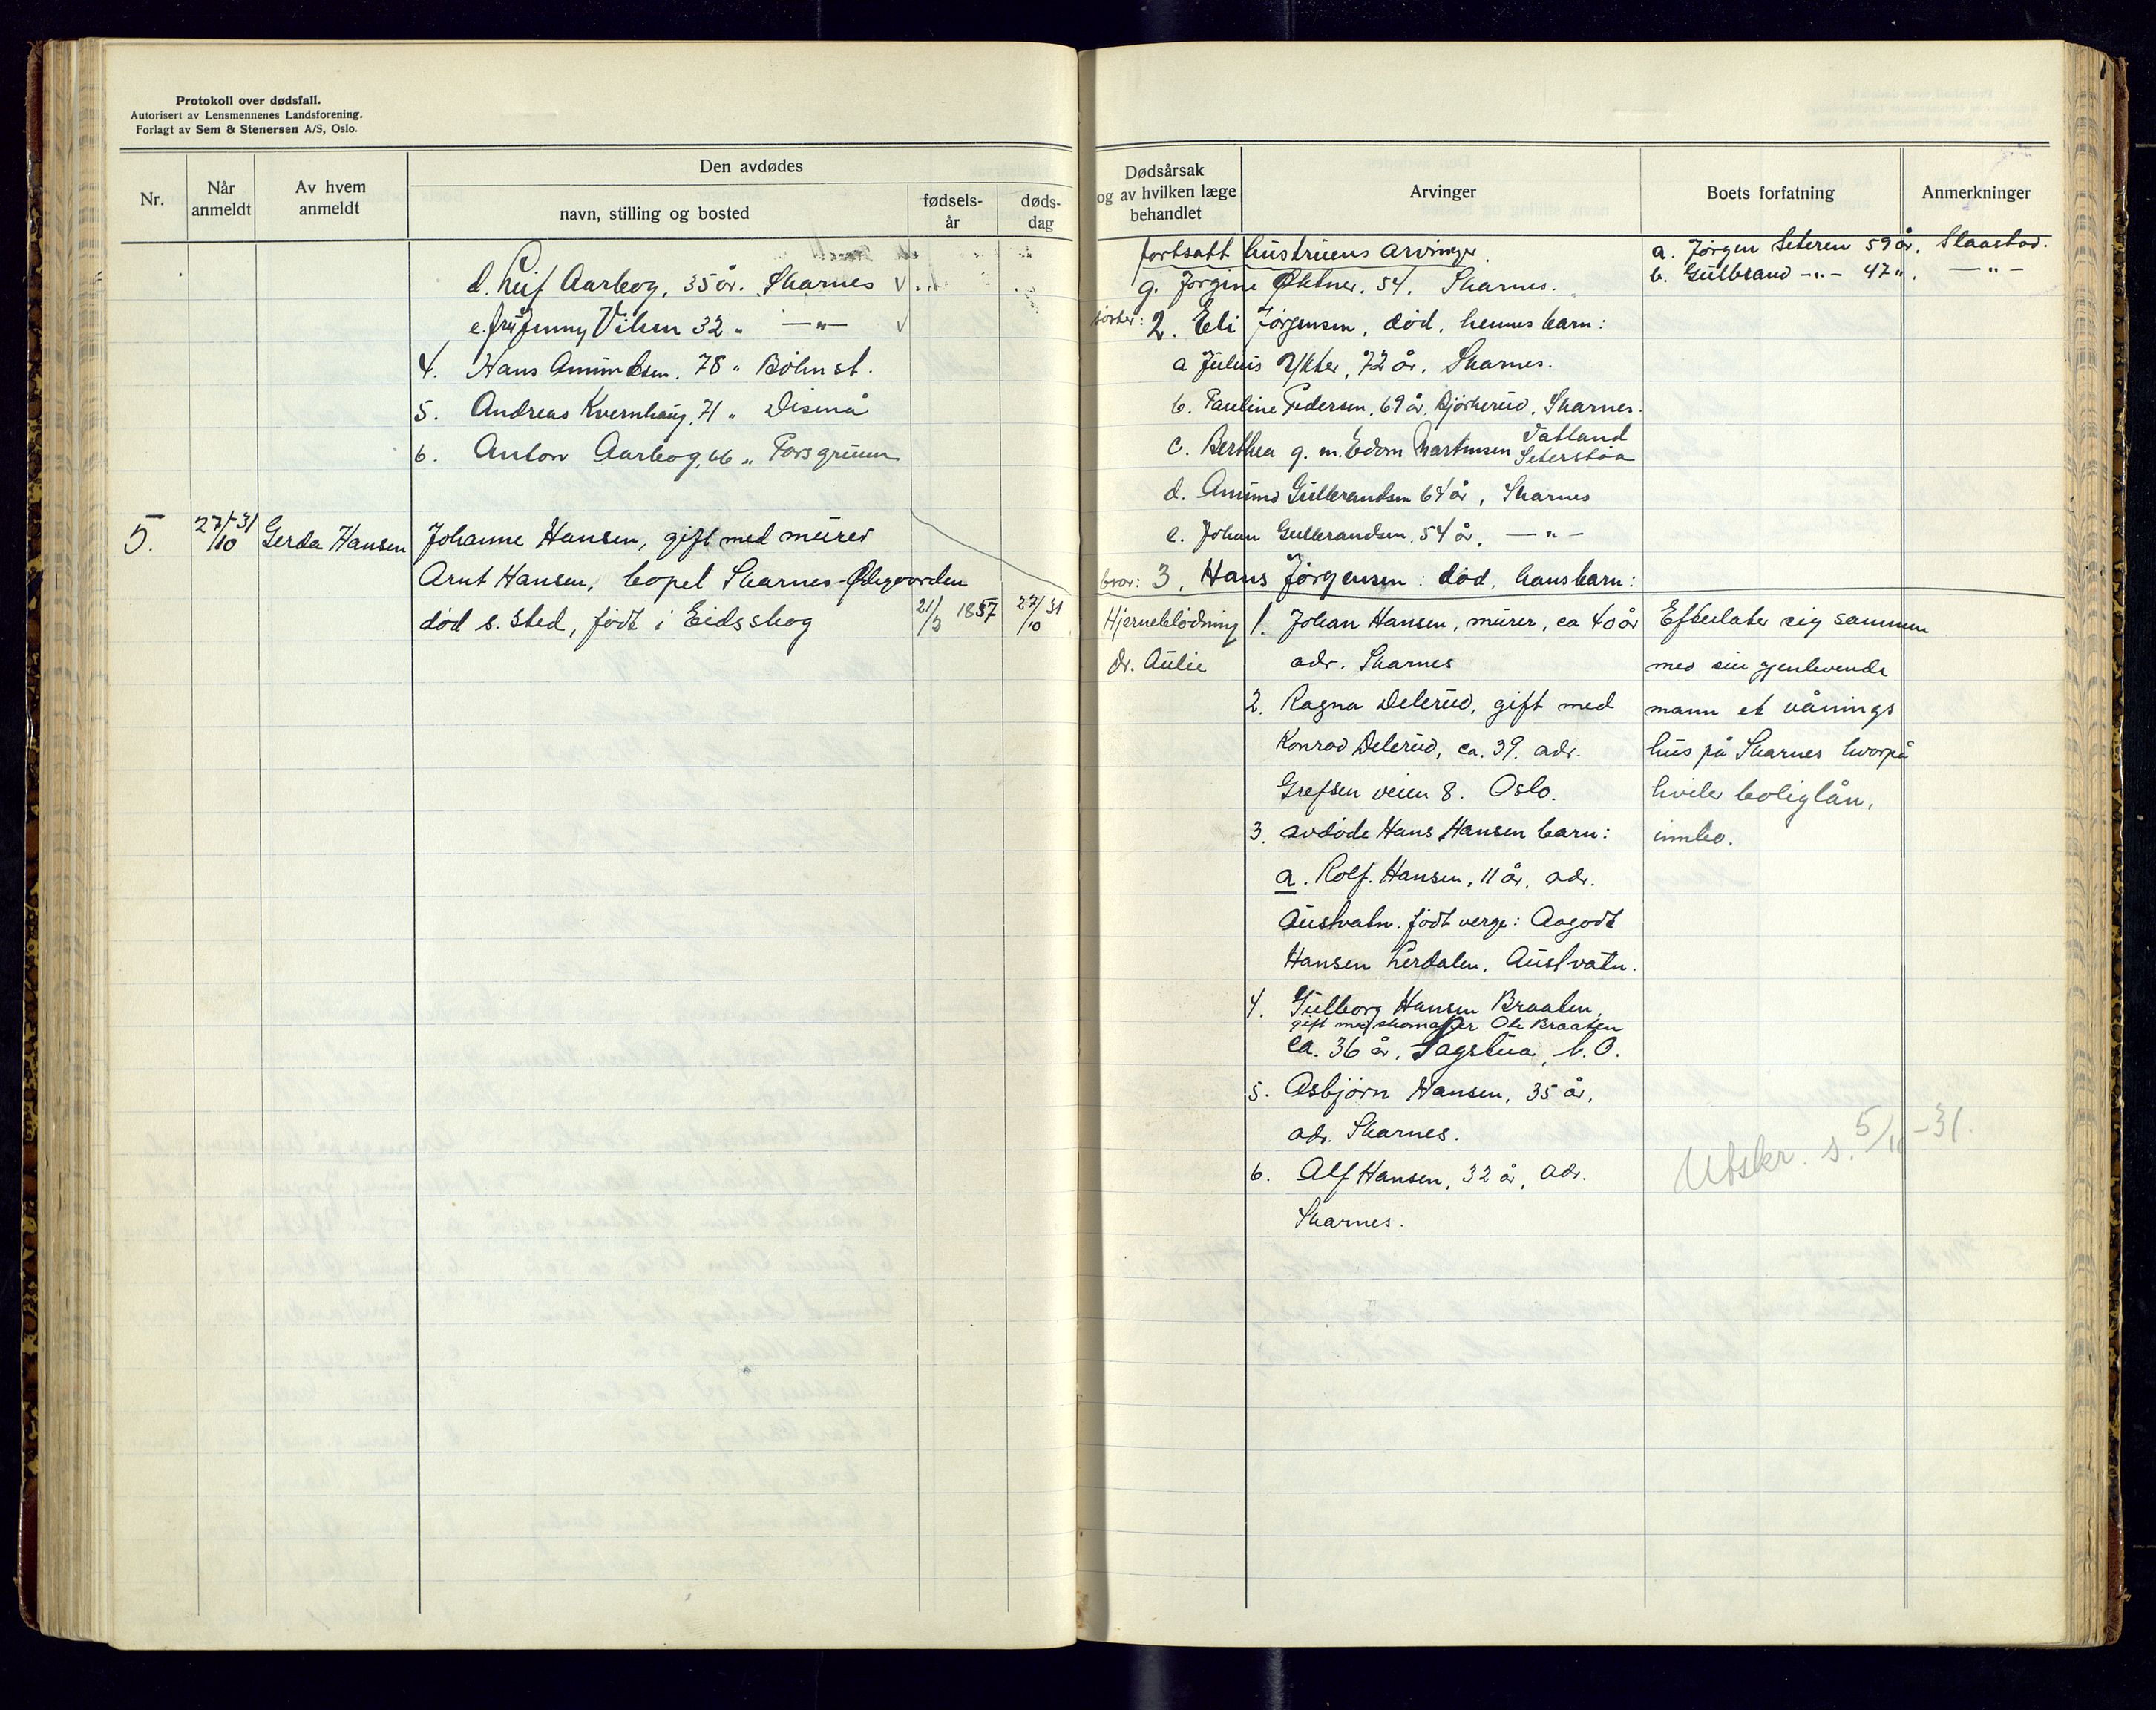 Protokoll over dødsfall.
Autorisert av Lensmennenes Landsforening.
Forlagt av Sem & Stenersen A/S, Oslo.
Nr.
Når anmeldt
Av hvem anmeldt
Den avdødes
navn, stilling og bosted
fødsels-år
døds-dag
d. Leif Aarbog, 35 år. Skarnes v
e. fru Jenny Vilsen 32 " —"— v
4. Hans Amundsen. 78 "
5. Andreas Kvernhaug, 71 " Disenå
6. Anton Aarbog, 66 " Porsgrunn
5. 27/10-31 Gerda Hansen Johanne Hansen, gift med murer
Arnt Hansen, bopel Skarnes-Ødegaarden
død s. sted, født i Eidsskog 21/3 1857 27/10 31
Dødsårsak og av hvilken læge behandlet
Arvinger
Boets forfatning
Anmerkninger
fortsatt hustruens arvinger.
g. Jørgine Øktner. 54. Skarnes.
søster: 2. Eli Jørgensen, død, hennes barn:
a Julius 72 år. Skarnes.
b. Pauline Pedersen, 69 år, Bjørkerud, Skarnes.
c. Berthea g. m. Edom Martinsen Vatland Seterstøa
d. Amund Gulbrandsen 64 år, Skarnes
e. Johan Gulbrandsen. 54 år. —"—
bror: 3. Hans Jørgensen: død, hans barn:
a. Jørgen Seteren 59 år. Slaastad.
b. Gulbrand —"— 47 ". —"—
Hjerneblødning
dr. Aulie
1. Johan Hansen, murer, ca 40 år
adr. Skarnes
2. Ragna Delerud, gift med
Konrad Delerud, ca. 39. adr.
Grefsen veien 8. Oslo.
3. avdøde Hans Hansen barn:
a. Rolf. Hansen, 11 år, adr.
Austvatn. født verge: Aagodt
Hansen Lerdalen, Austvatn.
4. Gulborg Hansen Braaten,
gift med skomaker Ole Braaten
ca. 36 år, Sagstua, N. O.
5. Asbjørn Hansen, 35 år,
adr. Skarnes.
6. Alf Hansen, 32 år, adr.
Skarnes.
Efterlater sig sammen
med sin gjenlevende
mann et vånings
hus på Skarnes hvorpå
hviler boliglån,
innbo.
Utskr. s. 5/11-31.